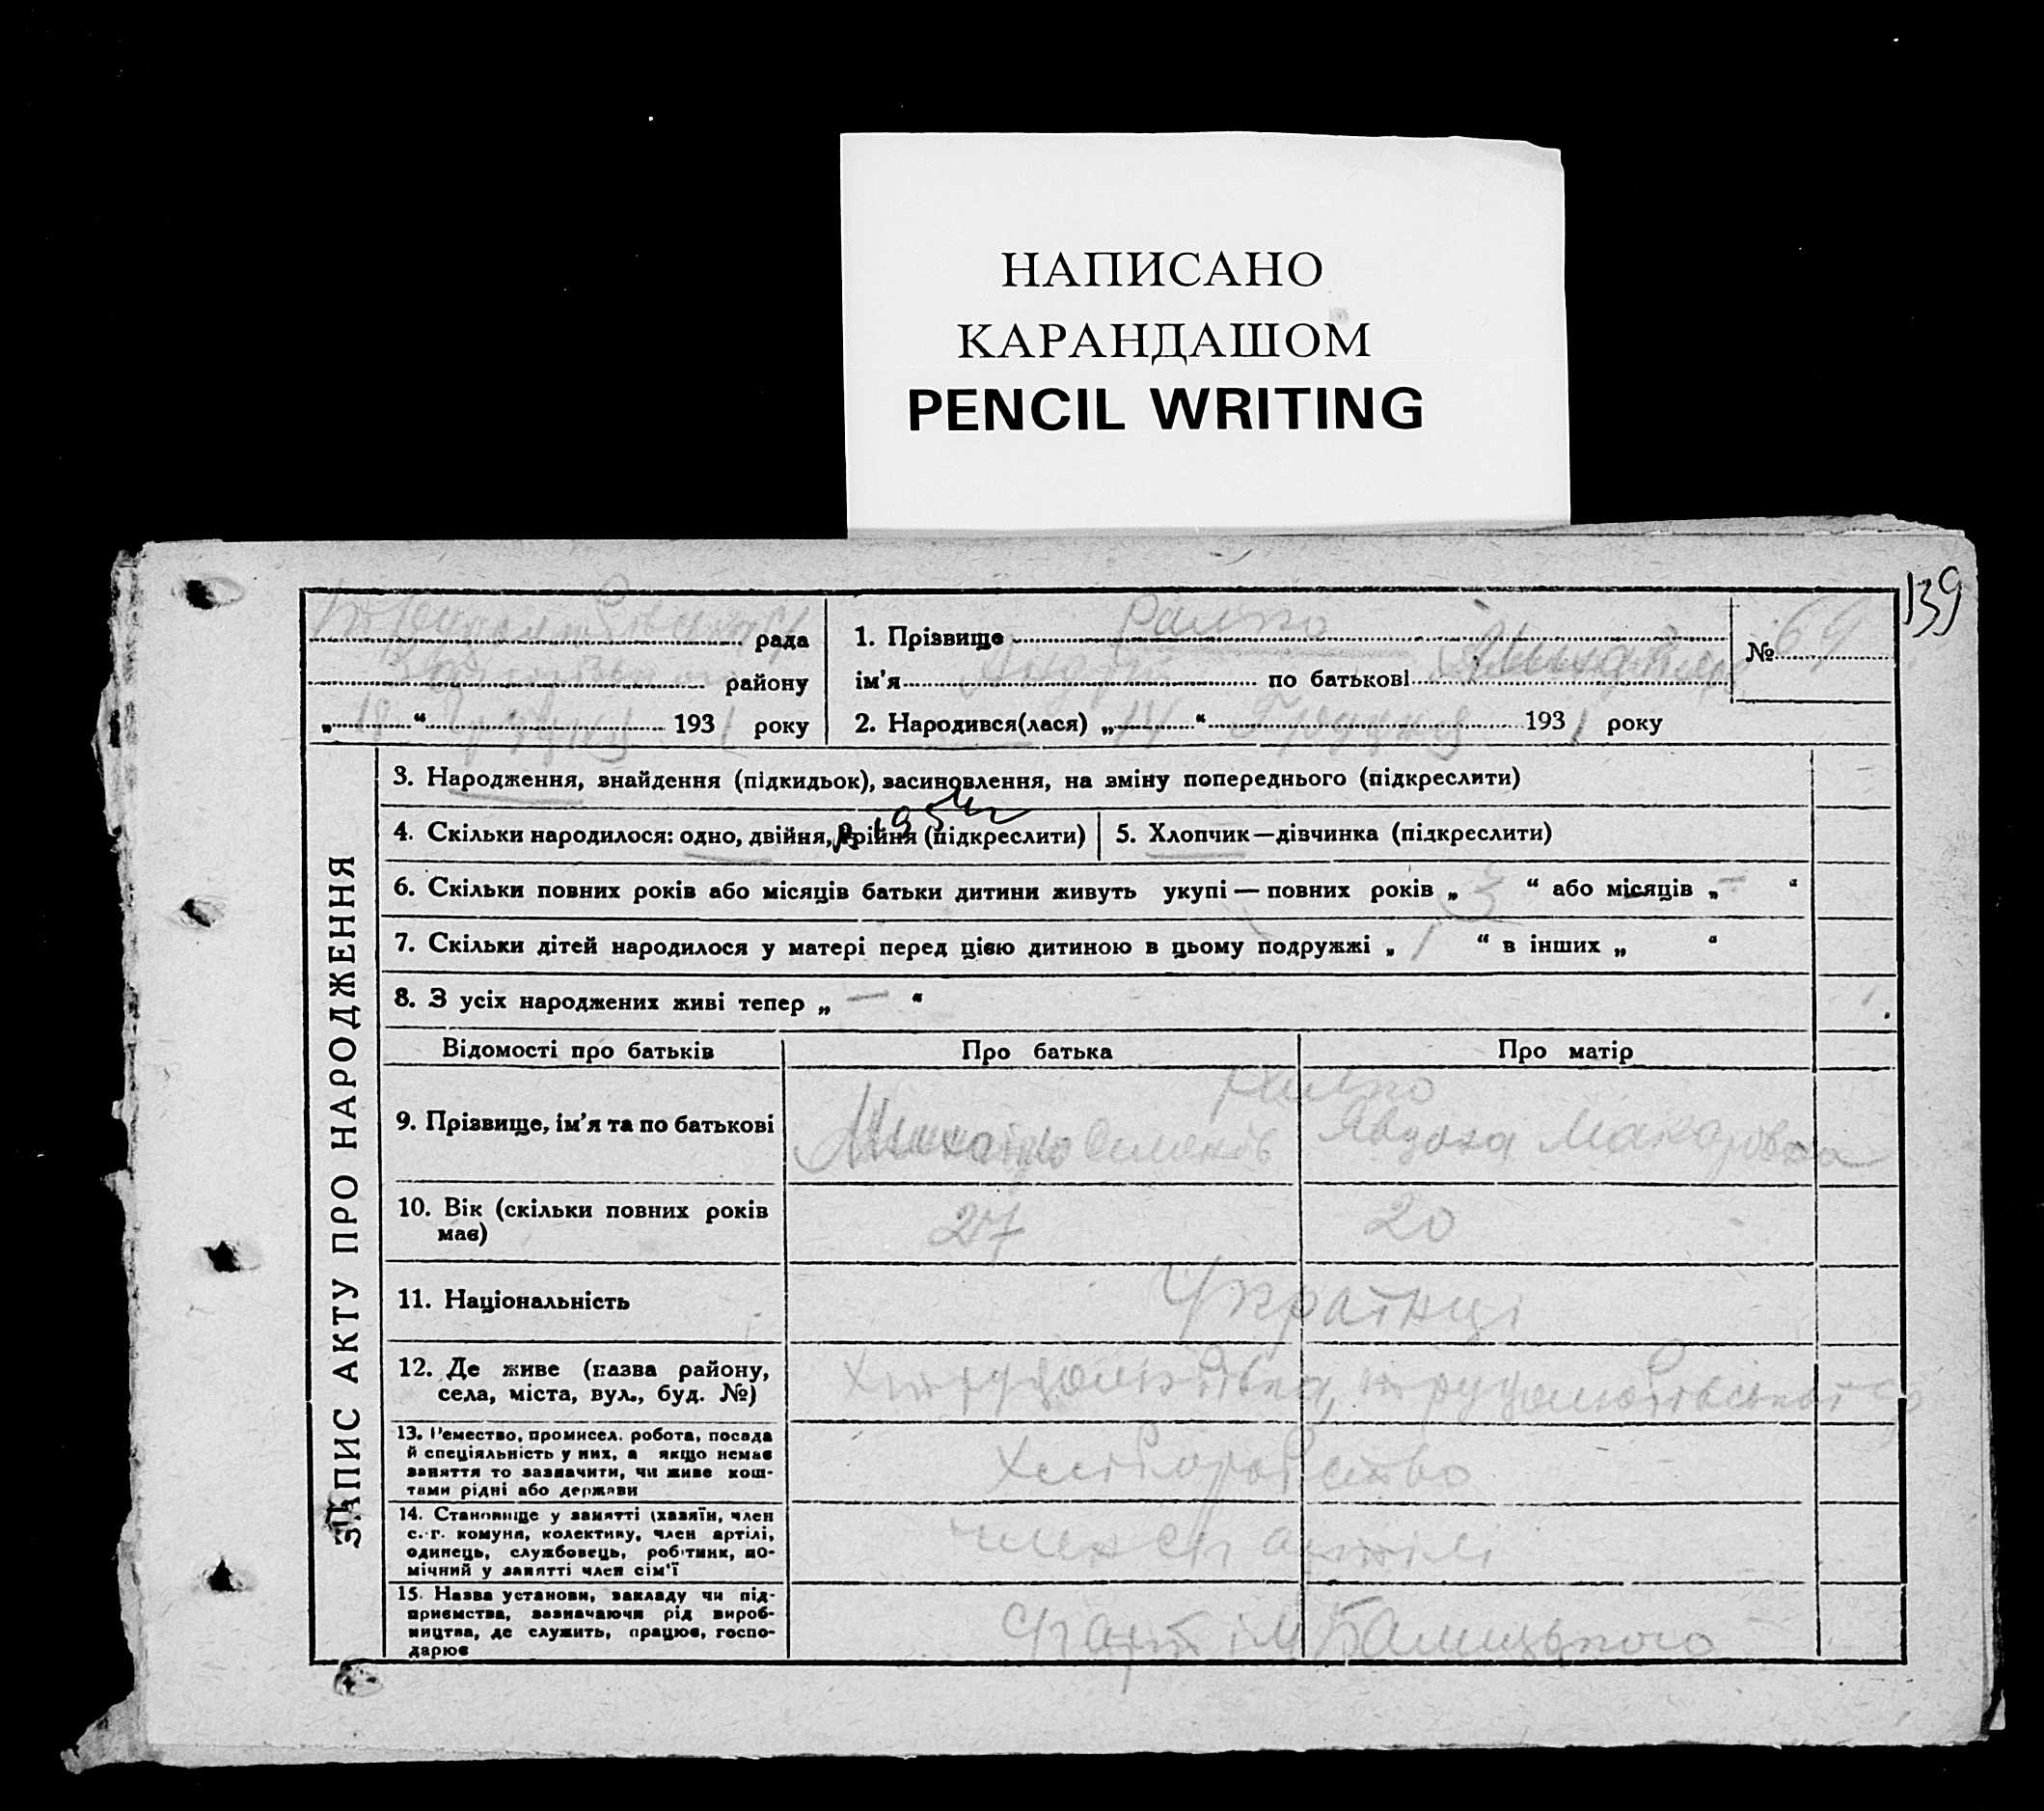 НАПИСАНО
КАРАНДАШОМ
PENCIL WRITING
139
рада
району
„18“ Грудня 1931 року
1. Прізвище Ралко
№ 69
ім'я Андрій по батькові Михайлів
2. Народився(лася) „14“ Грудня 1931 року
ЗАПИС АКТУ ПРО НАРОДЖЕННЯ
3. Народження, знайдення (підкидьок), засиновлення, на зміну попереднього (підкреслити)
4. Скільки народилося: одно, двійня, трійня (підкреслити)
5. Хлопчик—дівчинка (підкреслити)
6. Скільки повних років або місяців батьки дитини живуть укупі — повних років „ 3 “ або місяців „ – “
7. Скільки дітей народилося у матері перед цією дитиною в цьому подружжі „ 1 “ в інших „ “
8. З усіх народжених живі тепер „ — “
Відомості про батьків
Про батька
Про матір
9. Прізвище, ім'я та по батькові
Ралко
Михайло Семенів
Явдоха Макаровна
10. Вік (скільки повних років
має)
27
20
11. Національність
Українці
12. Де живе (назва району,
села, міста, вул., буд. №)
13. Ремество, промисел. робота, посада
й спеціяльність у них, а якщо немає
заняття то зазначити, чи живе кош-
тами рідні або держави
Хліборобство
14. Становище у занятті (хазяїн, член
с.-г. комуни, колективу, член артілі,
одинець, службовець, робітник, по-
мічний у занятті член сім'ї
член с/г артілі
15. Назва установи, закладу чи під-
приємства, зазначаючи рід вироб-
ництва, де служить, працює, госпо-
дарює
с/г арт ім Балицького